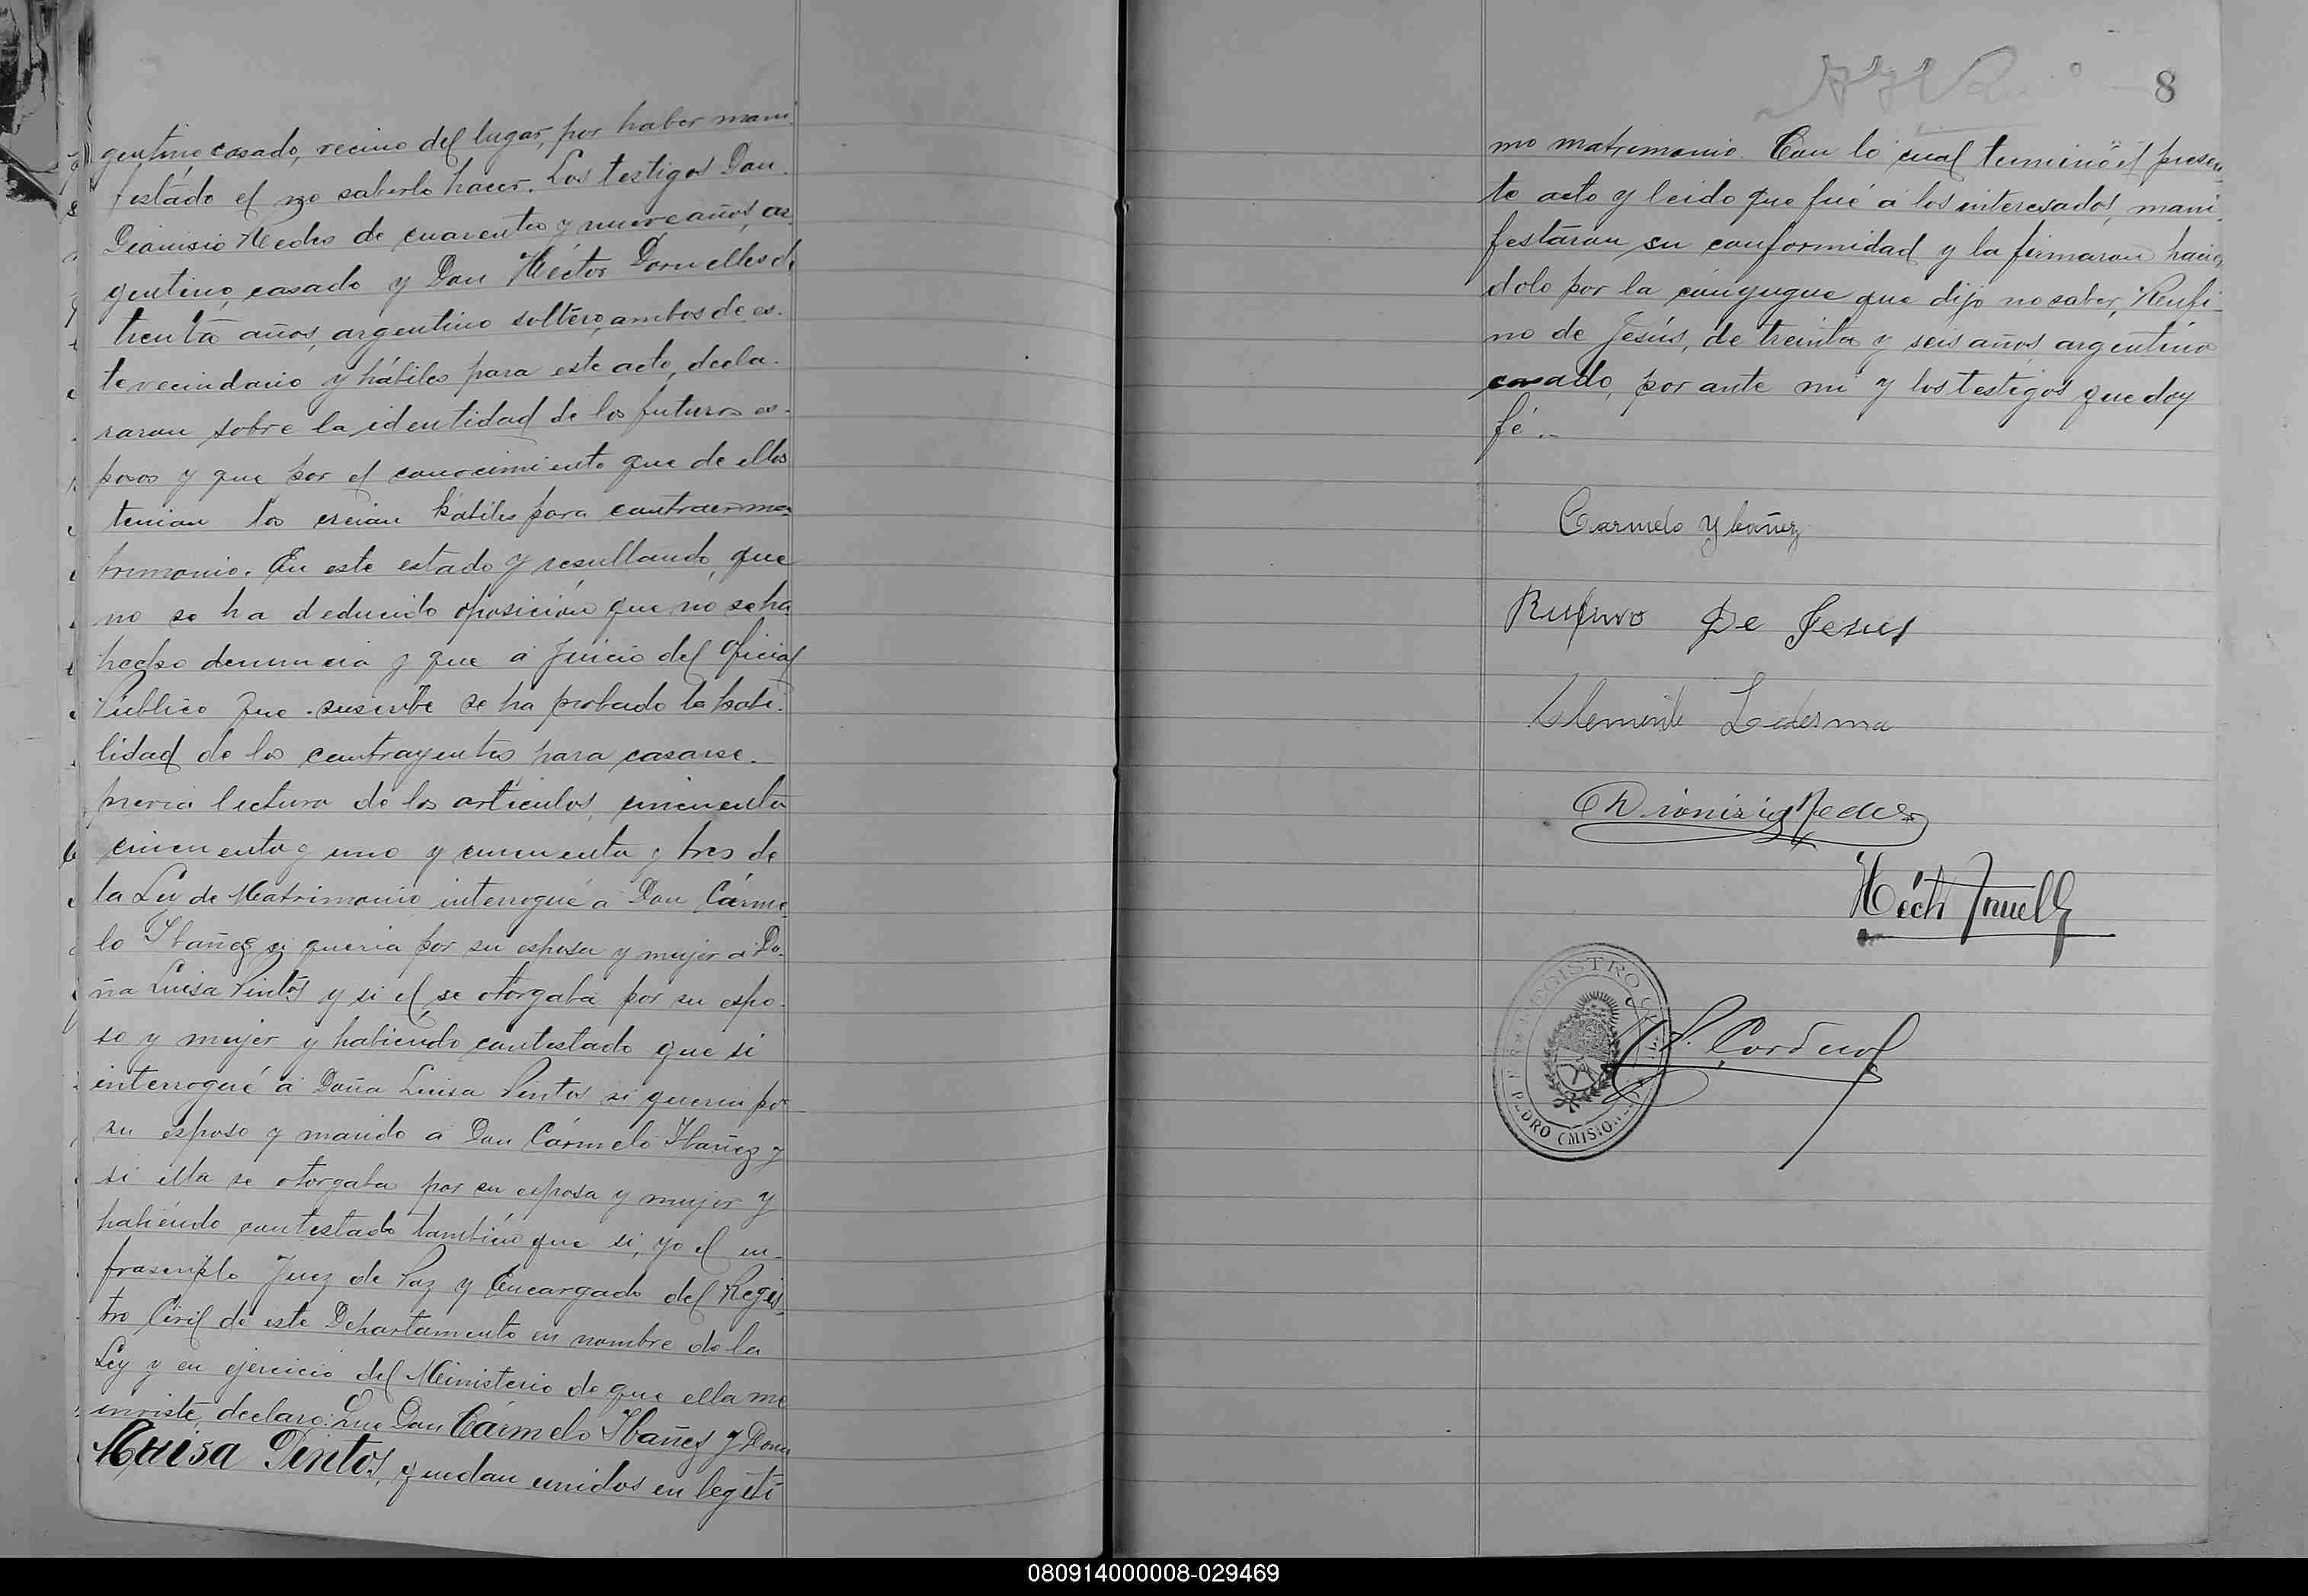 gentino casado, vecino del lugar, por haber mani-
festado el no saberlo hacer. Los testigos Don
Dionisio de cuarenta y nueve años, ar-
gentino, casado y Don Héctor Dornelles de
treinta años, argentino soltero, ambos de es-
te vecindario y hábiles para este acto, decla-
raron sobre la identidad de los futuros es-
posos y que por el conocimiento que de ellos
tenian los creian hábiles para contraer ma-
trimonio. En este estado y resultando, que
no se ha deducido oposición que no se ha
hecho denuncia y que a Juicio del Oficial
Público que suscribe se ha probado la habi-
lidad de los contrayentes para casarse.
previa lectura de los artículos, cincuenta
cincuenta y uno y cincuenta y tres de
la Ley de Matrimonio, interrogué a Don Cárme-
lo Ibañez si queria por su esposa y mujer a Do-
ña Luisa Pintos y si el se otorgaba por su espo-
so y mujer y habiendo contestado que si
interrogué a Doña Luisa Pintos si queria por
su esposo y marido a Don Cármelo Ibañez y
si ella se otorgaba por su esposa y mujer y
habiéndo contestado también que si, yo el in-
frascripto Juez de Paz y Encargado del Regis-
tro Civil de este Departamento en nombre de la
Ley y en ejercicio del Ministerio de que ella me
inviste, declaro: Que Don Cármelo Ibañez y Dona
Luisa Pintos, quedan unidos en legíti
8
mo matrimonio. Con lo cual terminó el presen-
te acto y leido que fué a los interesados, mani-
festaron su conformidad y la firmaron hacien-
dolo por la cónyugue que dijo no saber, Rufi-
no de Jesús, de treinta y seis años, argentino
casado, por ante mi y los testigos que doy
fé.-
Carmelo Ybañez
Rufino De Jesus
Clemente Ledesma
Dionisio
Héctor
REGISTRO CIVIL
PEDRO (MISIONES)
080914000008-029469